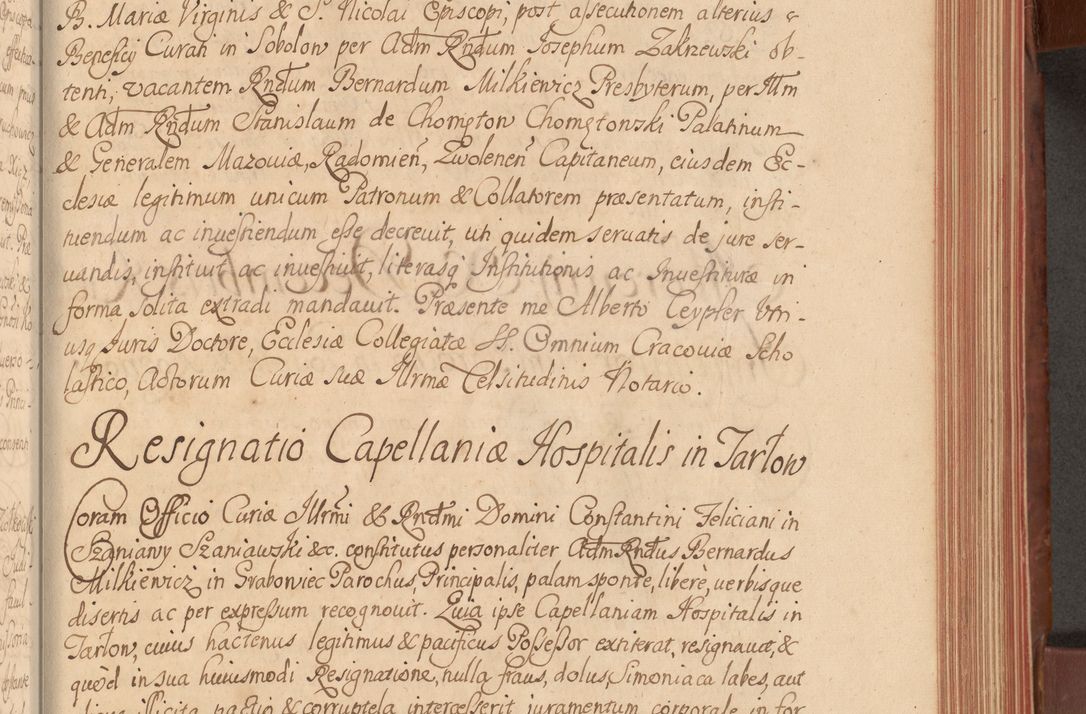 B. Mariæ Virginis & S. Nicolai Episcopi, post assecutionem alterius
Beneficij Curati in Sobolow per Adm Rndum Josephum Zakrzewski ob-
tenti, vacantem Rndum Bernardum Milkiewicz Presbyterum, per Illm
& Adm Rndum Stanislaum de Chomęton Chomętowski Palatinum
& Generalem Mazoviæ, Radomien, Zwolenen Capitaneum, eiusdem Ec-
clesiæ legitimum unicum Patronum & Collatorem præsentatum, insti-
tuendum ac investiendum esse decrevit, uti quidem servatis de jure ser-
vandis, instituit ac investivit, literasq Institutionis ac Investituræ in
forma solita extradi mandavit. Præsente me Alberto Ceypler Utri-
usq Juris Doctore, Ecclesiæ Collegiatæ SS. Omnium Cracoviæ Scho
lastico, Actorum Curiæ suæ Illrmæ Celsitudinis Notario.
Resignatio Capellaniæ Hospitalis in Tarłow
Coram Officio Curiæ Illrmi & Rndmi Domini Constantini Feliciani in
Szaniawy Szaniawski &c. constitutus personaliter Adm Rndus Bernardus
Milkiewicz in Grabowiec Parochus, Principalis, palam sponte, liberè, verbisque
disertis ac per expressum recognovit. Quia ipse Capellaniam Hospitalis in
Tarłow, cuius hactenus legitimus & pacificus Possessor extiterat, resignavit, &
quòd in sua huiusmodi Resignatione, nulla fraus, dolus, Simoniaca labes, aut
illicita pactio & corruptela intercesserit juramentum corporale in for